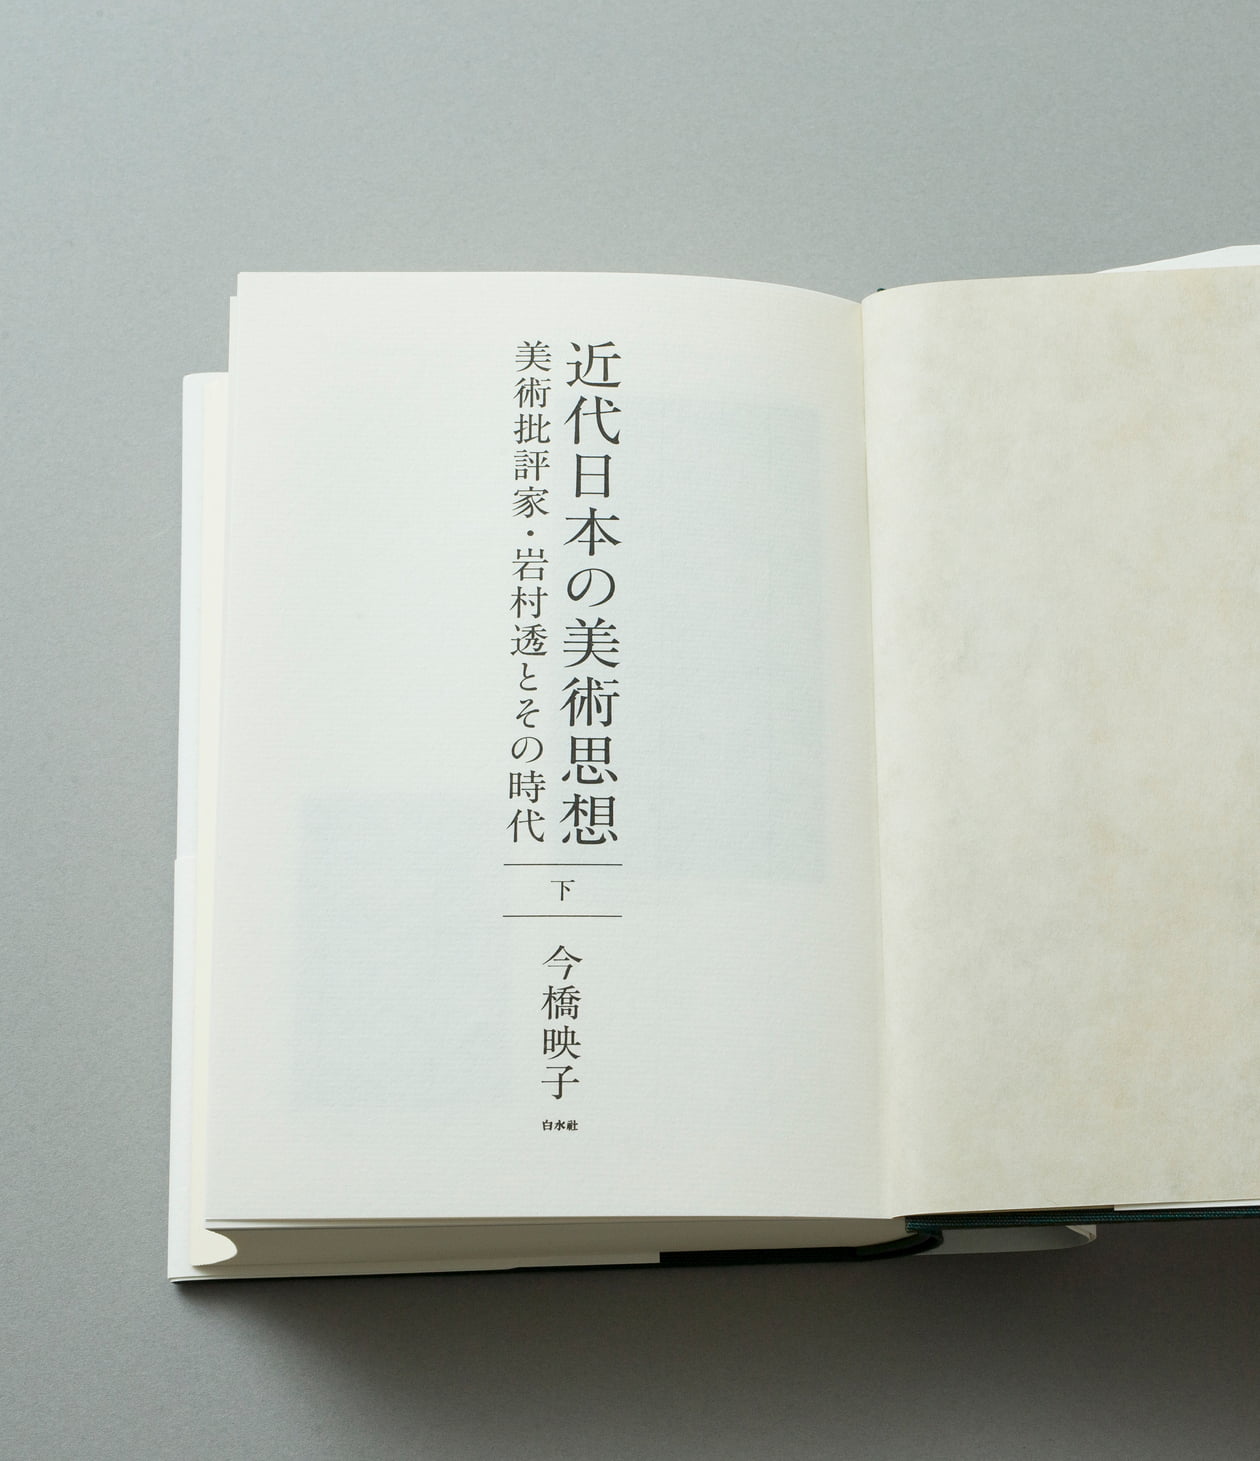 近代日本の美術思想
美術批評家・岩村透とその時代
下
今橋映子
白水社